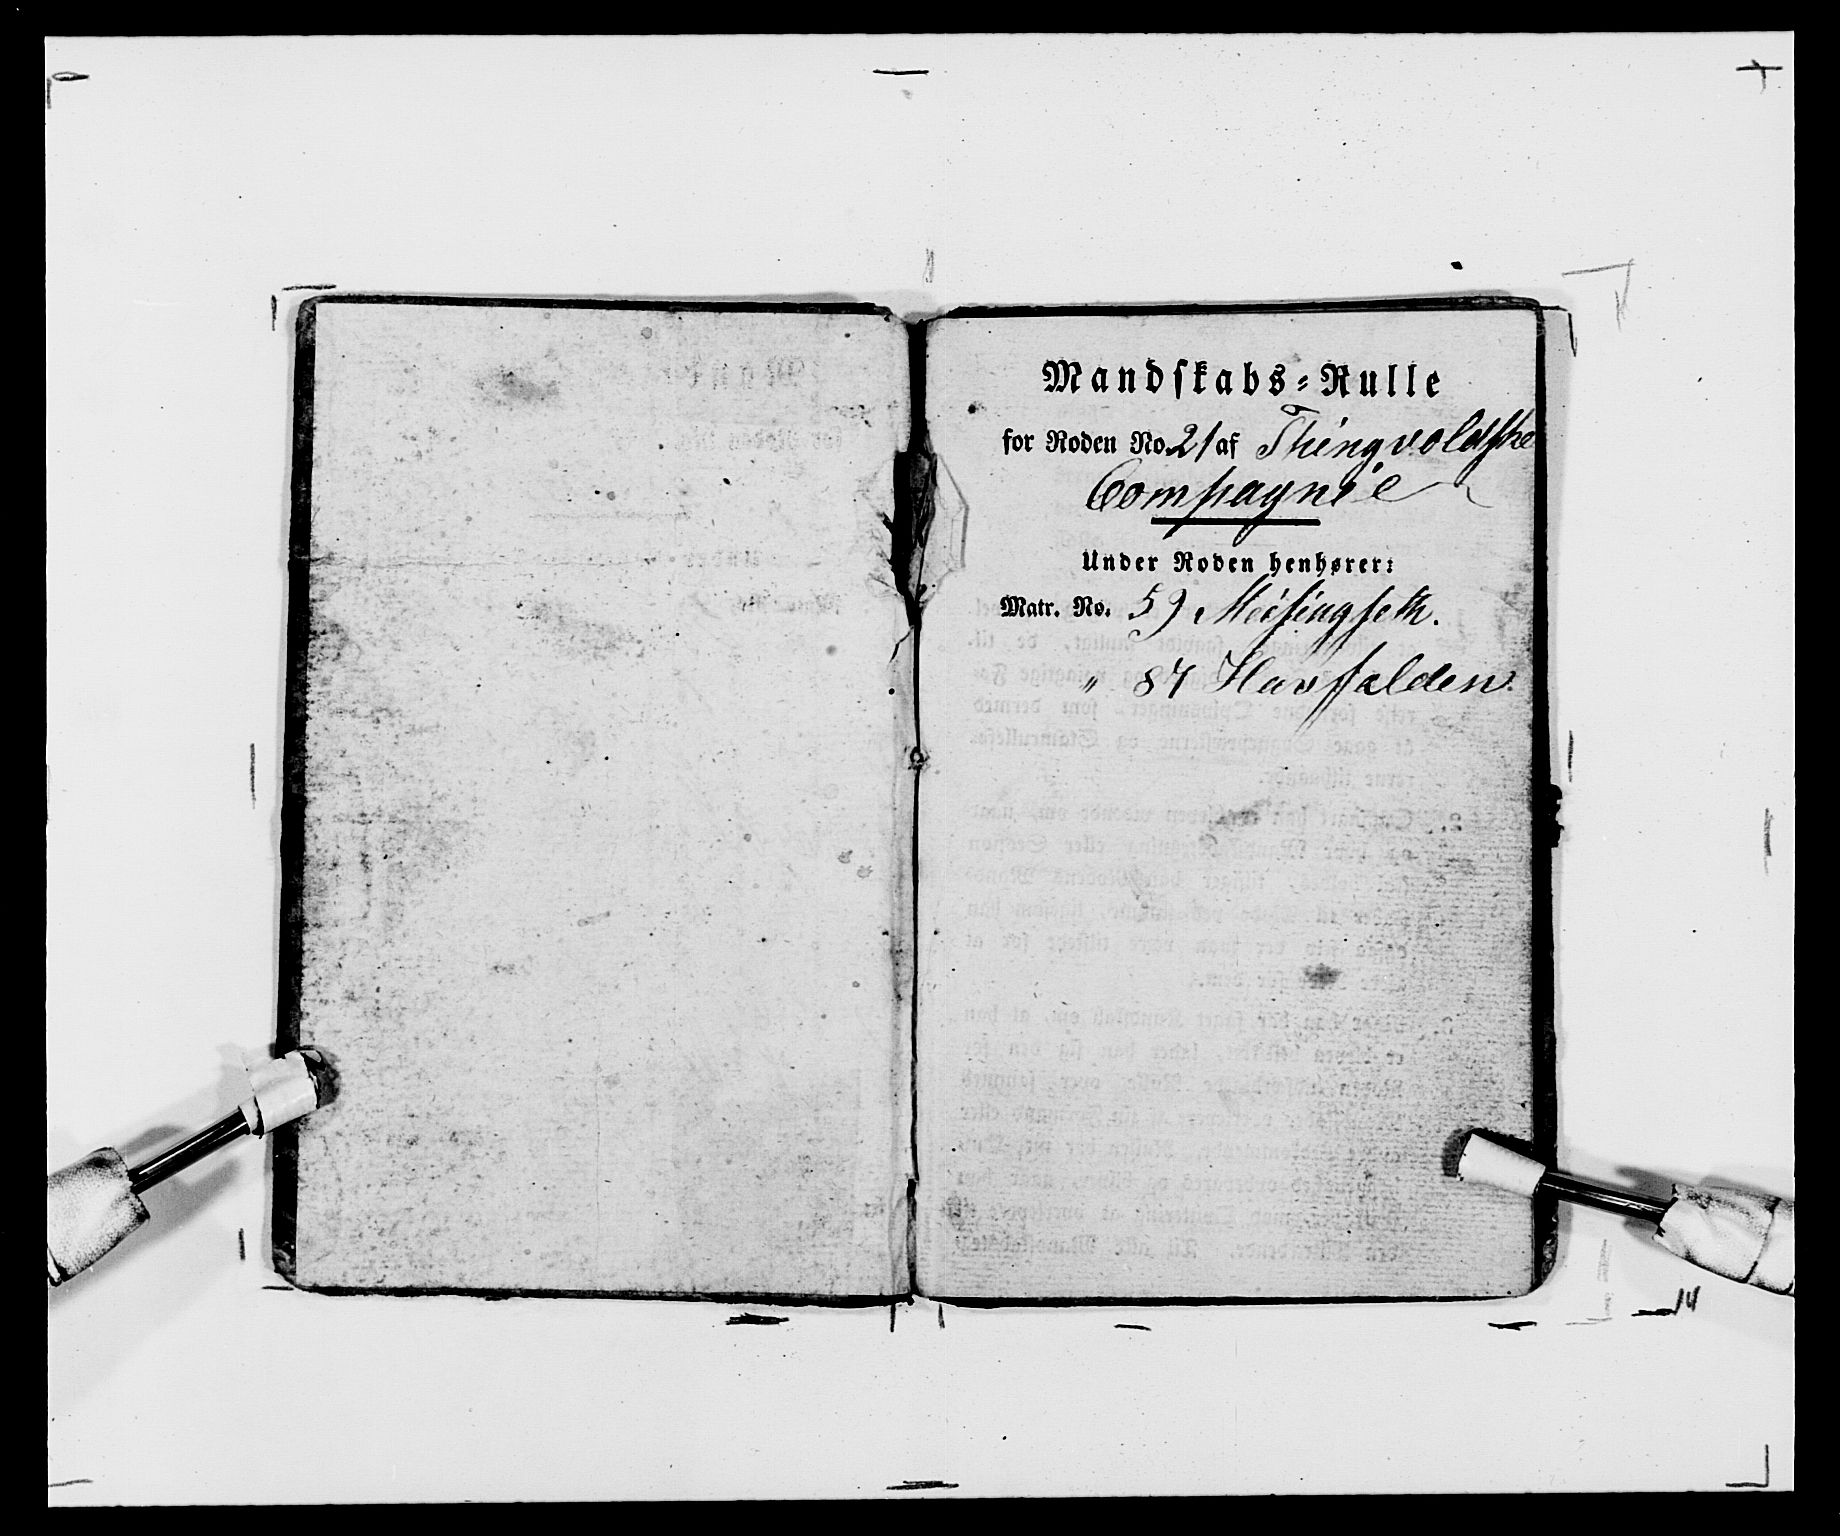 Mandskabs-Rulle
for Roden No. 21 af Thingvoldske
Compagnie
Under Roden henhører:
Matr. No. 59 Meisingseth.
" 84 Havsfalden.
14